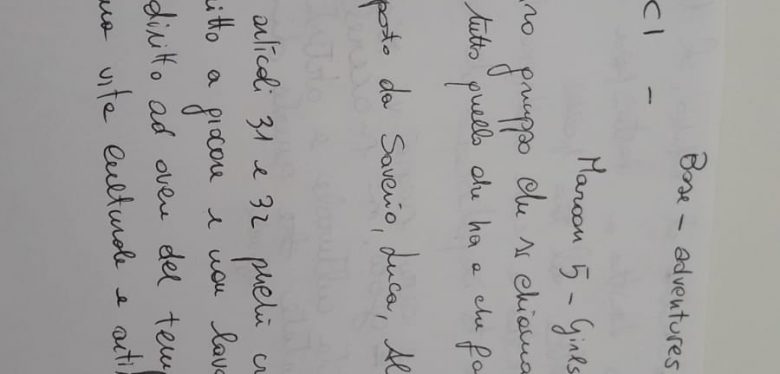 Base - adventures
CI -
Maroon 5 - Girls
gruppo che si chiama
tutto quello che ha a che fa
posto da Saverio, Luca, Al
articoli 31 e 32
a giocare e non lavo
diritto ad avere del temp
vita culturale e arti